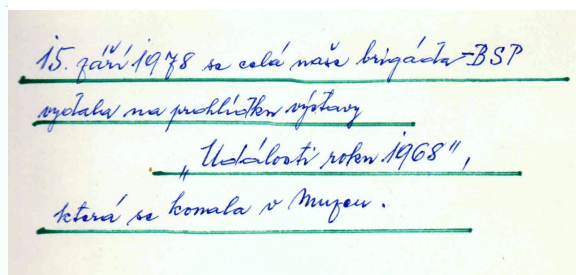 15. září 1978 se celá naše brigáda-BSP
vydala na prohlídku výstavy
„Události roku 1968",
která se konala v Muzeu.